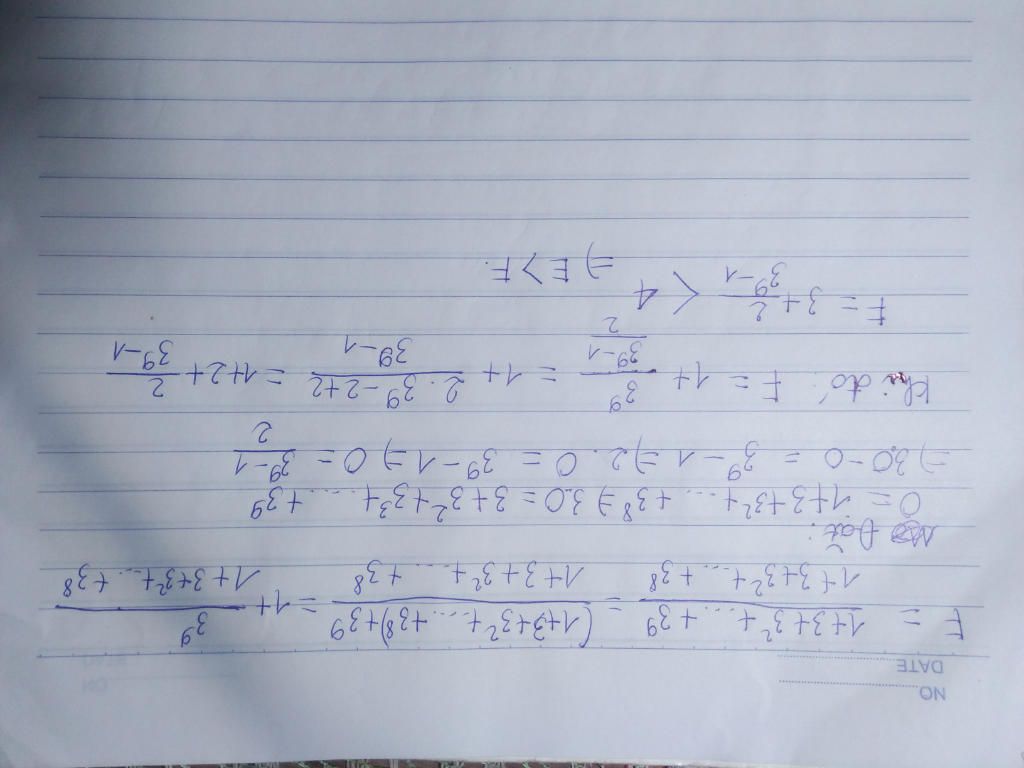 NO
DATE
F = (1+3+3²+...+3⁹)/(1+3+3²+...+3⁸) = ((1+3+3²+...+3⁸)+3⁹)/(1+3+3²+...+3⁸) = 1+ 3⁹/(1+3+3²+...+3⁸)
Đặt:
O = 1+3+3²+...+3⁸ ⇒ 3.O = 3+3²+3³+...+3⁹
⇒ 3.O-O = 3⁹-1 ⇒ 2.O = 3⁹-1 ⇒ O = (3⁹-1)/2
Khi đó: F = 1+ 3⁹/((3⁹-1)/2) = 1+ (2.3⁹-2+2)/(3⁹-1) = 1+2+ 2/(3⁹-1)
F = 3+ 2/(3⁹-1) < 4
⇒ E > F.